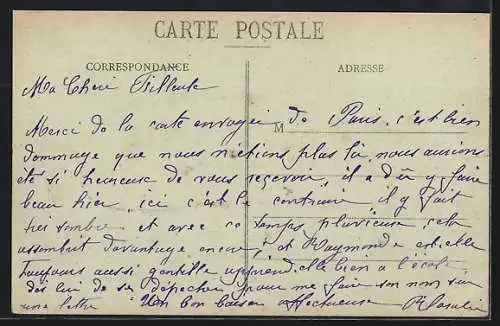 CARTE POSTALE
CORRESPONDANCE
ADRESSE
M
Ma Chère Filleule
Merci de la carte envoyée de Paris, c'est bien
dommage que nous n'étions plus là, nous aurions
été si heureux de vous reçevoir, il a dû y faire
beau hier, ici c'est le contraire, il y fait
très sombre et avec ce temps pluvieux, cela
assombrit davantage encore, et Raymonde est-elle
toujours aussi gentille apprend-elle bien à l'école,
dis lui de se dépecher pour me faire son nom sur
une lettre Un bon baiser affectueux